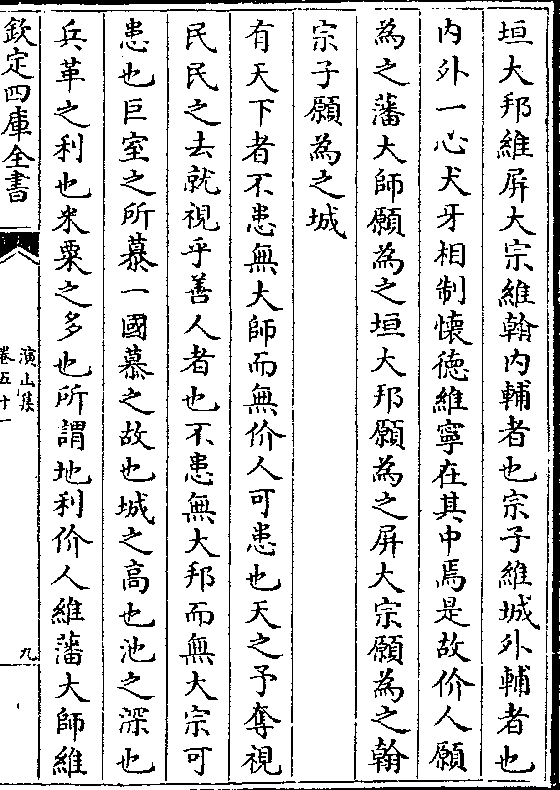 垣大邦維屏大宗維翰内輔者也宗子維城外輔者也
内外一心犬牙相制懷徳維寧在其中焉是故价人願
為之藩大師願為之垣大邦願為之屏大宗願為之翰
宗子願為之城
有天下者不患無大師而無价人可患也天之予奪視
民民之去就視乎善人者也不患無大邦而無大宗可
患也巨室之所慕一國慕之故也城之高也池之深也
兵革之利也米粟之多也所謂地利价人維藩大師維
欽定四庫全書
演山集
卷五十一
九